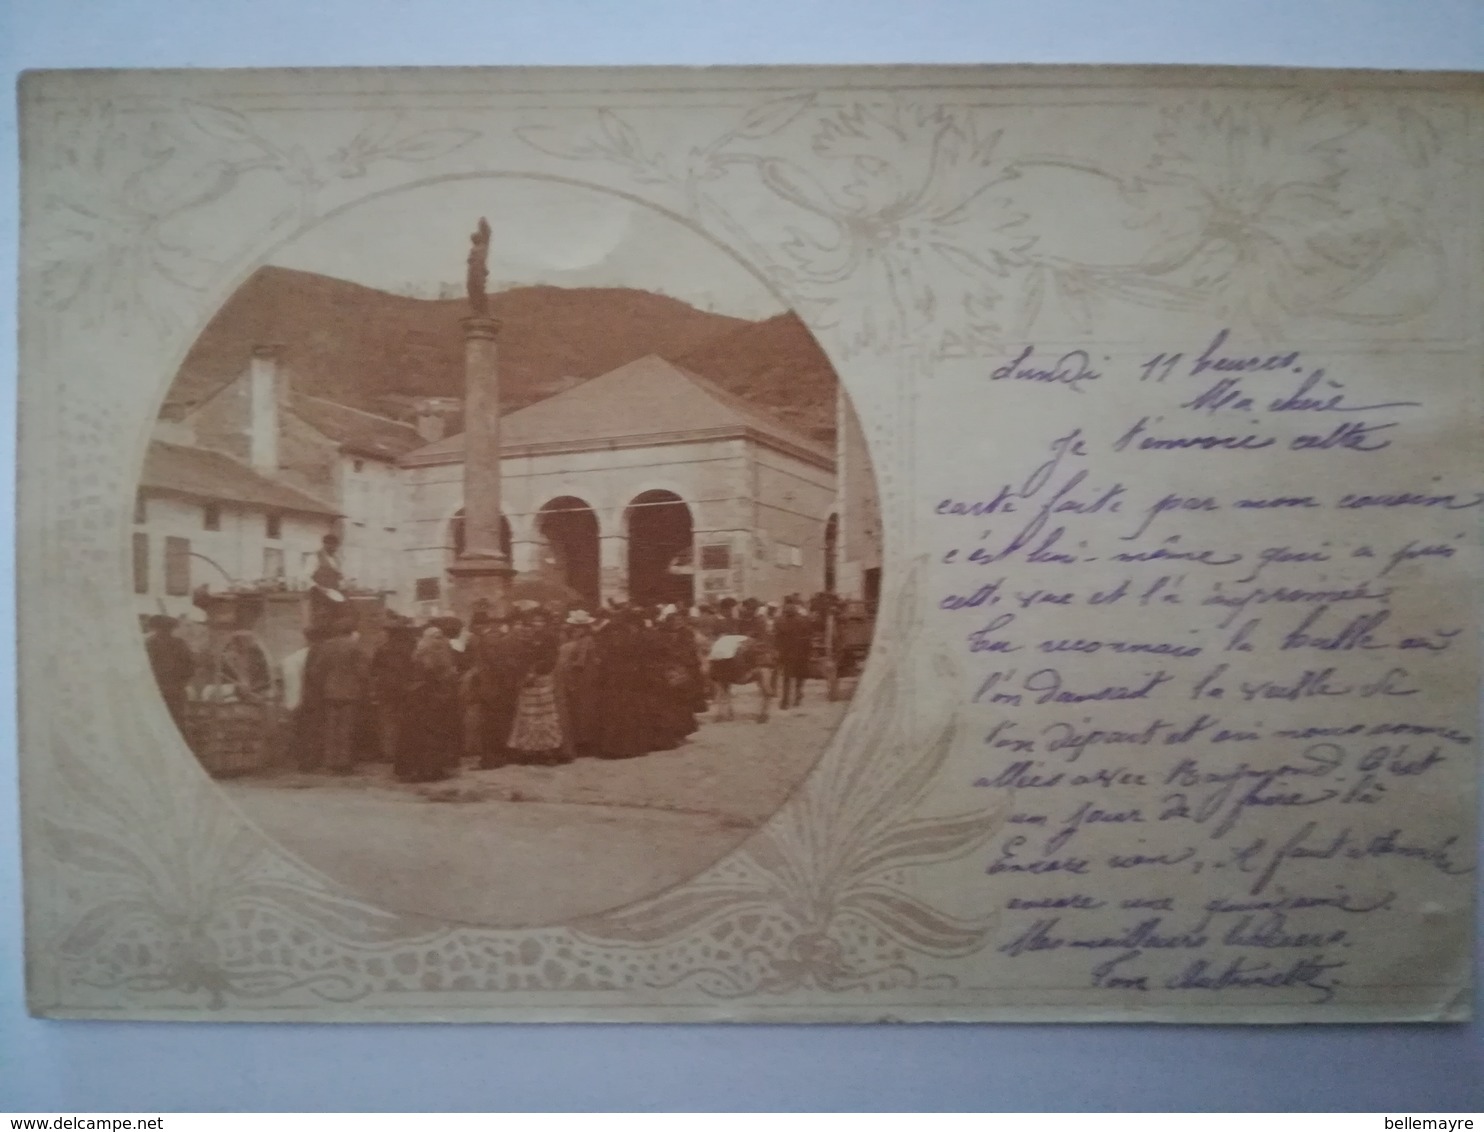 Lundi 11 heures.
Ma chère
Je t'envoie cette
carte faite par mon cousin
c'est lui-même qui a pris
cette vue et l'a imprimée.
Tu reconnais la halle où
l'on dansait la veille de
l'on départ et où nous sommes
allées avec Raymond. C'est
un jour de foire là
Encore rien, il faut attendre
encore une quinzaine.
Mes meilleurs baisers.
Ton Antoinette.
delcampe.net
bellemayre